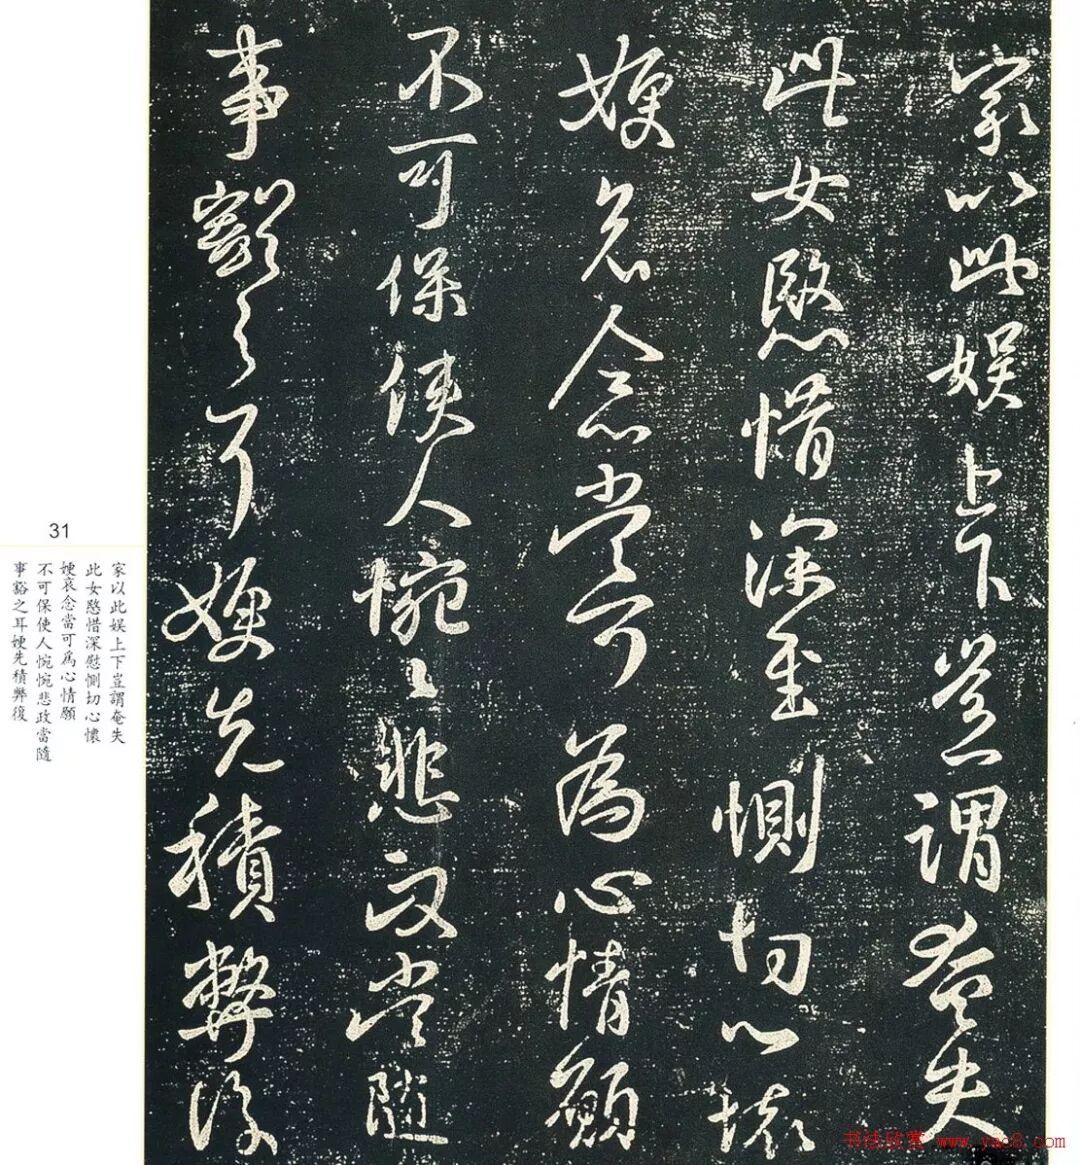 家以此娱上下豈謂奄失
此女愍惜深至惻切心懷
嫂哀念當可為心情願
不可保使人惋惋悲政當隨
事豁之耳嫂先積弊復
31
家以此娱上下豈謂奄失
此女愍惜深慰惻切心懷
嫂哀念當可為心情願
不可保使人惋惋悲政當隨
事豁之耳嫂先積弊復
书法欣赏 www.yac8.com